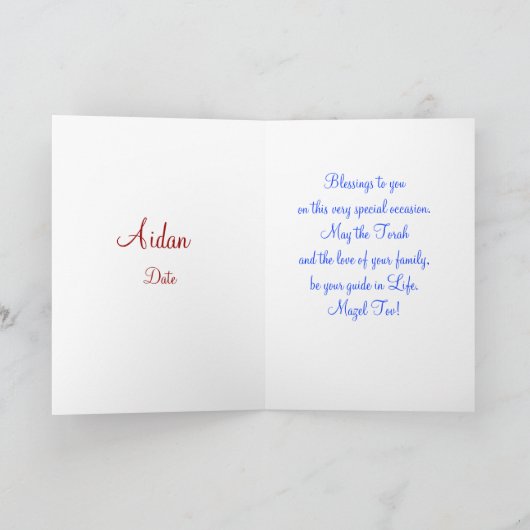 Aidan
Date
Blessings to you
on this very special occasion.
May the Torah
and the love of your family,
be your guide in Life.
Mazel Tov!